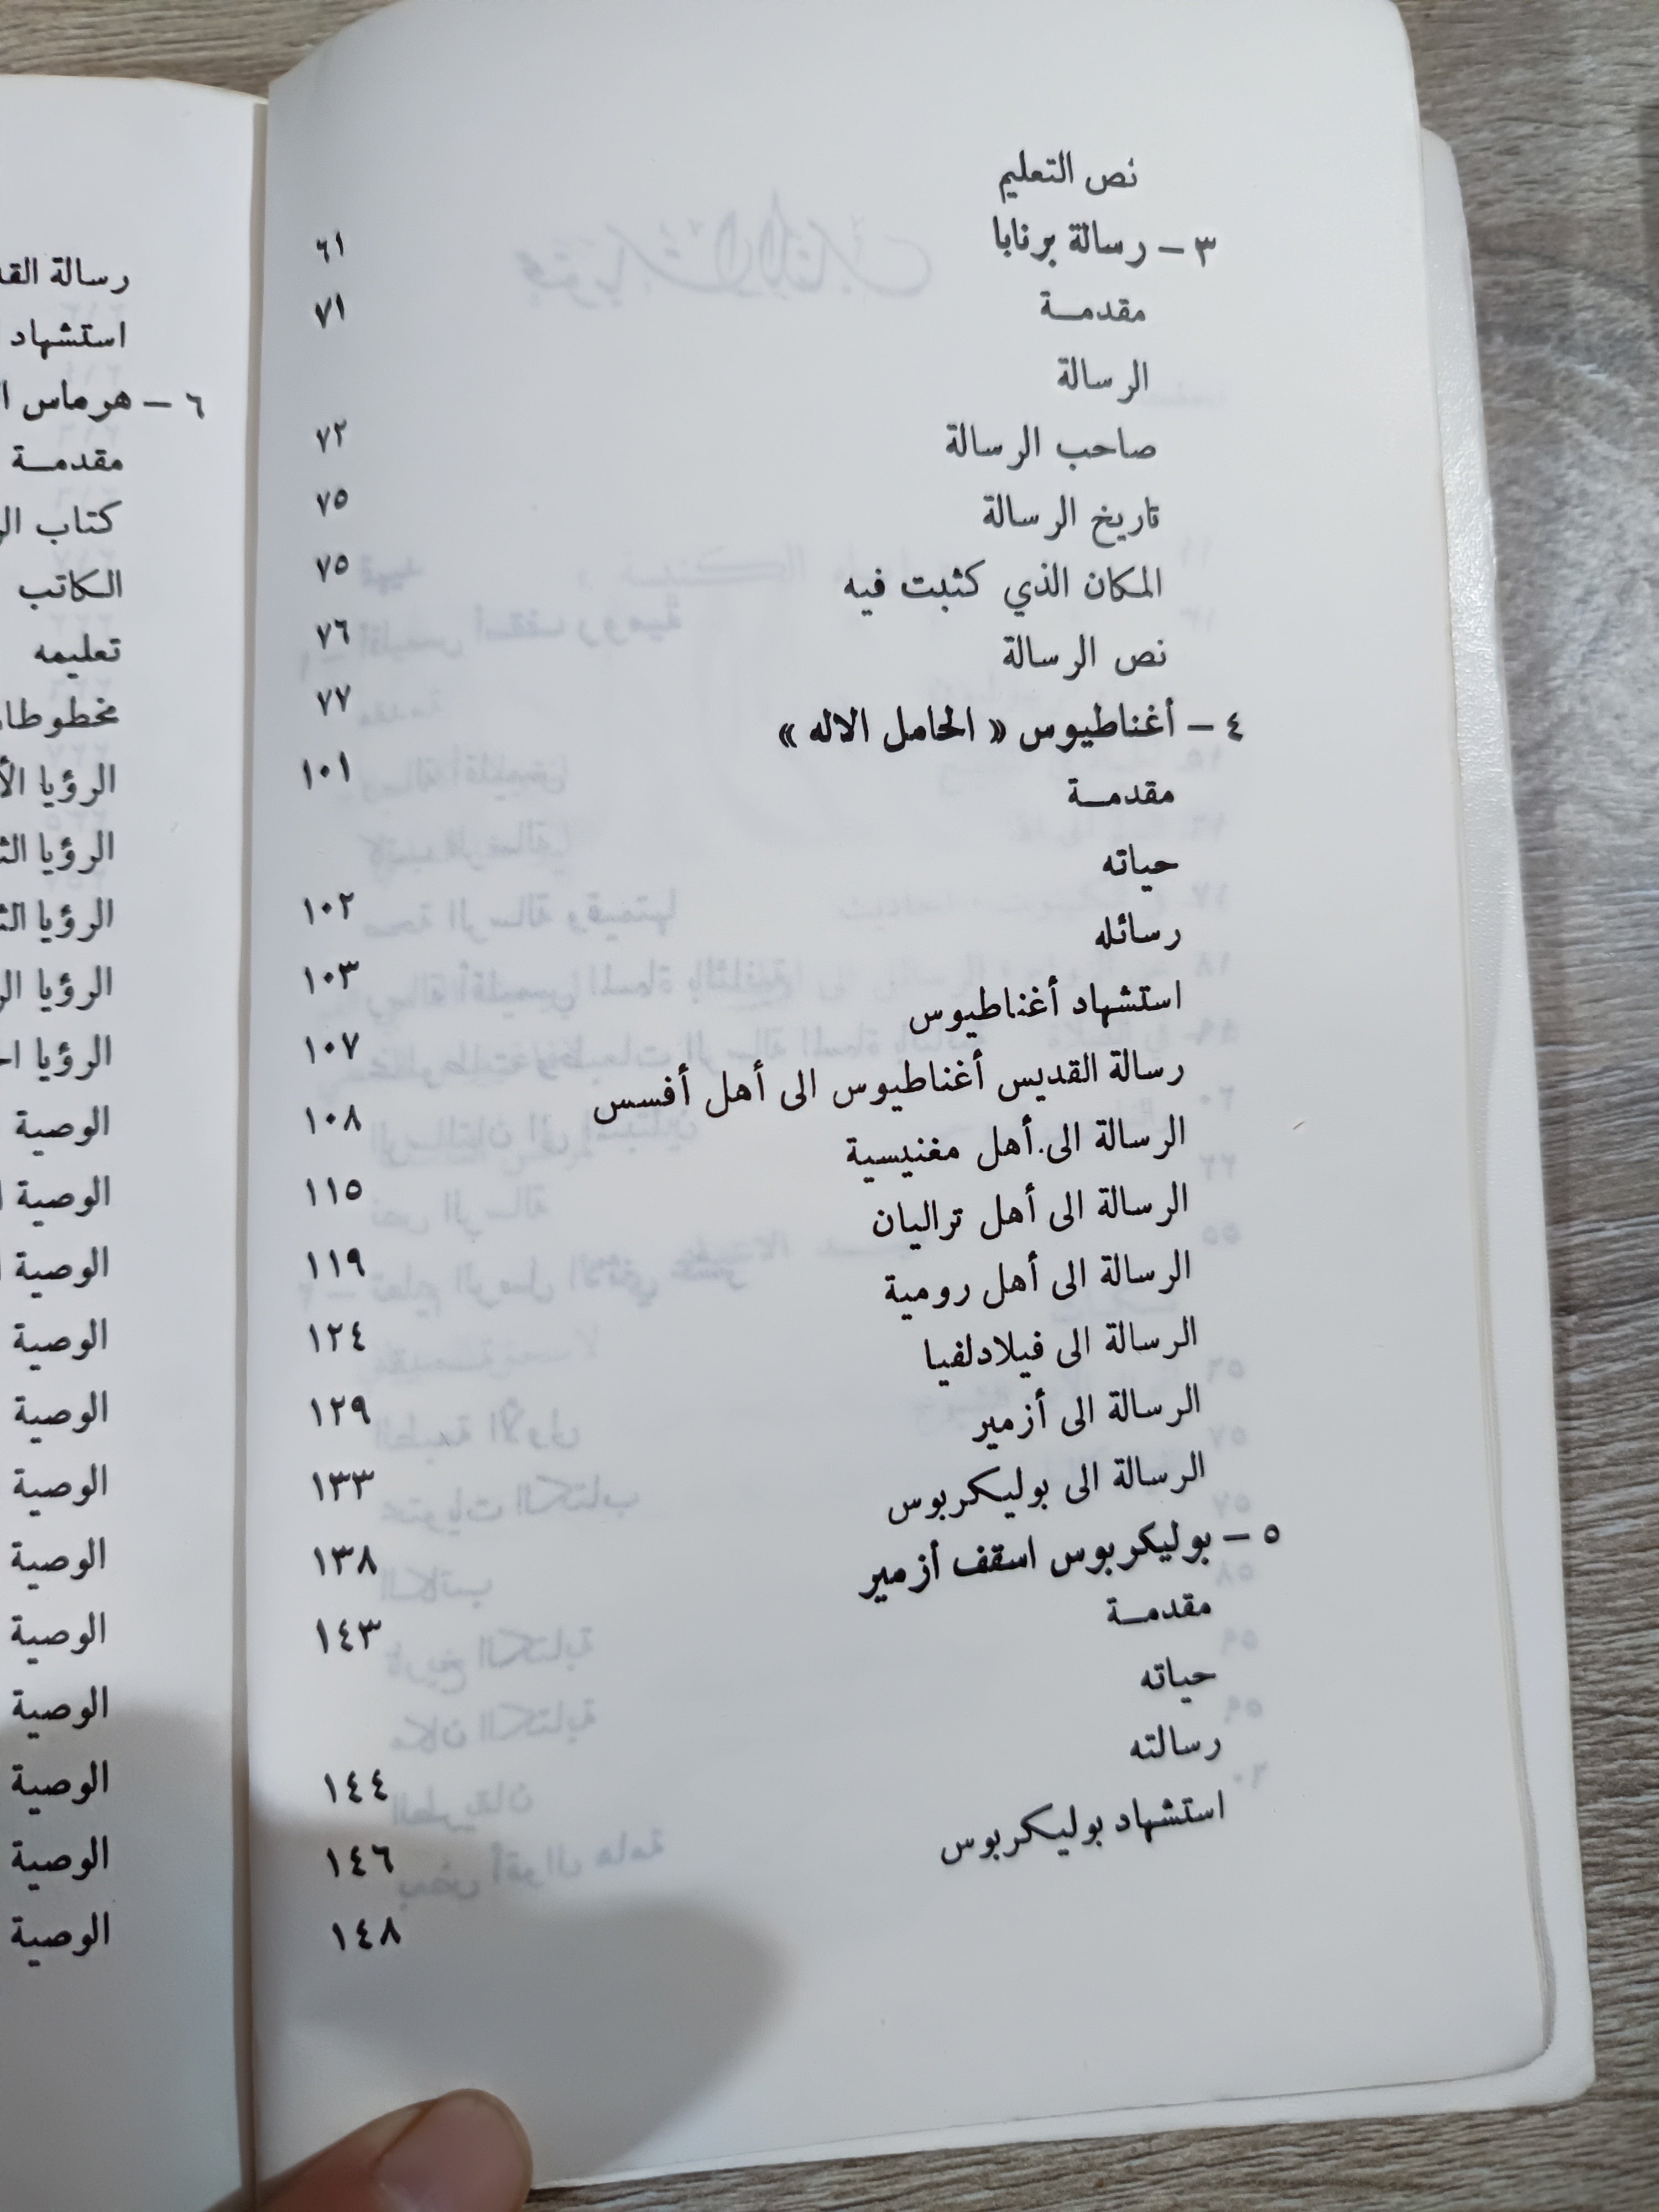 نص التعليم ٦١
٣ – رسالة برنابا ٧١
مقدمـــة
الرسالة ٧٢
صاحب الرسالة ٧٥
تاريخ الرسالة ٧٥
المكان الذي كثبت فيه ٧٦
نص الرسالة ٧٧
٤ – أغناطيوس « الحامل الاله » ١٠١
مقدمـــة
حياته ١٠٢
رسائله ١٠٣
استشهاد أغناطيوس ١٠٧
رسالة القديس أغناطيوس الى أهل أفسس ١٠٨
الرسالة الى أهل مغنيسية ١١٥
الرسالة الى أهل تراليان ١١٩
الرسالة الى أهل رومية ١٢٤
الرسالة الى فيلادلفيا ١٢٩
الرسالة الى أزمير ١٣٣
الرسالة الى بوليكربوس ١٣٨
٥ – بوليكربوس اسقف أزمير ١٤٣
مقدمـــة
حياته ١٤٤
رسالته ١٤٦
استشهاد بوليكربوس ١٤٨
رسالة
استشهاد
٦ – هرماس
مقدمـــة
كتاب
الكاتب
تعليمه
الرؤيا
الرؤيا
الرؤيا
الرؤيا
الرؤيا
الوصية
الوصية
الوصية
الوصية
الوصية
الوصية
الوصية
الوصية
الوصية
الوصية
الوصية
الوصية